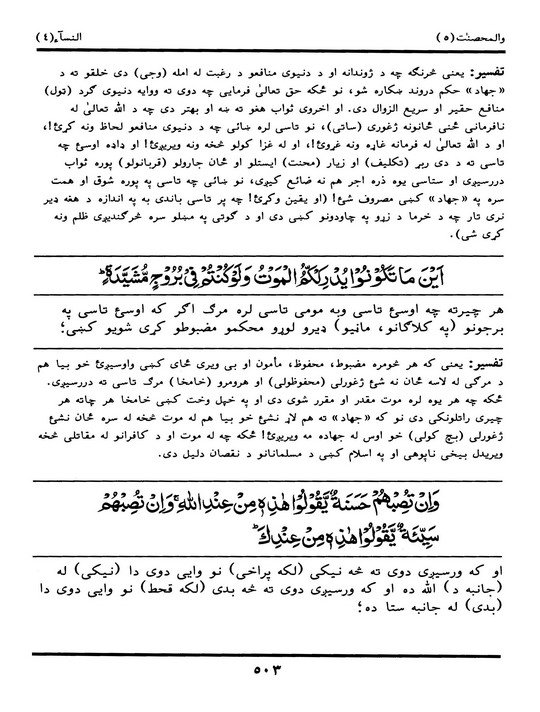 والمحصنٰت (٥) النسآء (٤)
تفسیر: یعنی څرنګه چه د ژوندانه او د دنیوی منافعو د رغبت له امله (وجی) دی خلقو ته د
«جهاد» حکم دروند ښکاره شو، نو ځکه حق تعالیٰ فرمایی چه دوی ته ووایه دنیوی ګرد (ټول)
منافع حقیر او سریع الزوال دی. او اخروی ثواب هغو ته ښه او بهتر دی چه د الله تعالیٰ له
نافرمانی ځنی ځانونه ژغوری (ساتی)، نو تاسی لره ښائی چه د دنیوی منافعو لحاظ ونه کړئ!
او د الله تعالیٰ له فرمانه غاړه ونه غړوئ!، او له غزا کولو څخه ونه ویریږئ! او ډاډه اوسئ چه
تاسی ته د دی ربړ (تکلیف) او زیار (محنت) ایستلو او ځان جارولو (قربانولو) پوره ثواب
دررسیږی او ستاسی یوه ذره اجر هم نه ضائع کیږی، نو ښائی چه تاسی په پوره شوق او همت
سره په «جهاد» کښی مصروف شئ! (او یقین وکړئ! چه پر تاسی باندی به په اندازه د هغه ډیر
نری تار چه د خرما د زړو په چاودونو کښی دی او د ګوتی په مښلو سره څرګندیږی ظلم ونه
کړی شی).
اَیْنَ مَا تَكُوْنُوْا یُدْرِكْكُّمُ الْمَوْتُ وَلَوْ كُنْتُمْ فِیْ بُرُوْجٍ مُّشَیَّدَةٍ ؕ
هر چیرته چه اوسئ تاسی وبه مومی تاسی لره مرګ اګر که اوسئ تاسی په
برجونو (په کلاګانو، ماڼیو) ډیرو لوړو محکمو مضبوطو کړی شویو کښی؛
تفسیر: یعنی که هر څومره مضبوط، محفوظ، مأمون او بی ویری ځای کښی واوسیږئ خو بیا هم
د مرګی له لاسه ځان نه شئ ژغورلی (محفوظولی) او هرومرو (خامخا) مرګ تاسی ته دررسیږی.
ځکه چه هر یوه لره موت مقدر او مقرر شوی دی او په خپل وخت کښی خامخا هر چاته هر
چیری راتلونکی دی نو که «جهاد» ته هم لاړ نشئ خو بیا هم له موت څخه له سره ځان نشئ
ژغورلی (بچ کولی) خو اوس له جهاده مه ویریږئ! ځکه چه له موت او د کافرانو له مقاتلی څخه
ویریدل بیخی ناپوهی او په اسلام کښی د مسلمانانو د نقصان دلیل دی.
وَاِنْ تُصِبْهُمْ حَسَنَةٌ یَّقُوْلُوْا هٰذِهٖ مِنْ عِنْدِ اللّٰهِ ۚ وَاِنْ تُصِبْهُمْ
سَیِّئَةٌ یَّقُوْلُوْا هٰذِهٖ مِنْ عِنْدِكَ ؕ
او که ورسیږی دوی ته څه نیکی (لکه پراخی) نو وایی دوی دا (نیکی) له
(جانبه د) الله ده او که ورسیږی دوی ته څه بدی (لکه قحط) نو وایی دوی دا
(بدی) له جانبه ستا ده؛
٥٠٣